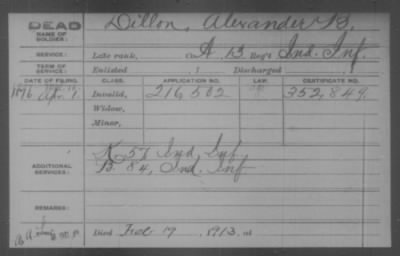 DEAD
NAME OF SOLDIER:
Dillon, Alexander B.
SERVICE:
Late rank, Co. A, 13 Reg't Ind. Inf.
TERM OF SERVICE:
Enlisted , 1 Discharged
DATE OF FILING. CLASS. APPLICATION NO. LAW. CERTIFICATE NO.
1876 Apr. 1. Invalid, 216,502 352,849.
Widow,
Minor,
ADDITIONAL SERVICES:
K. 57 Ind. Inf.
B. 84, Ind. Inf
REMARKS:
Died Feb 17, 1913, at